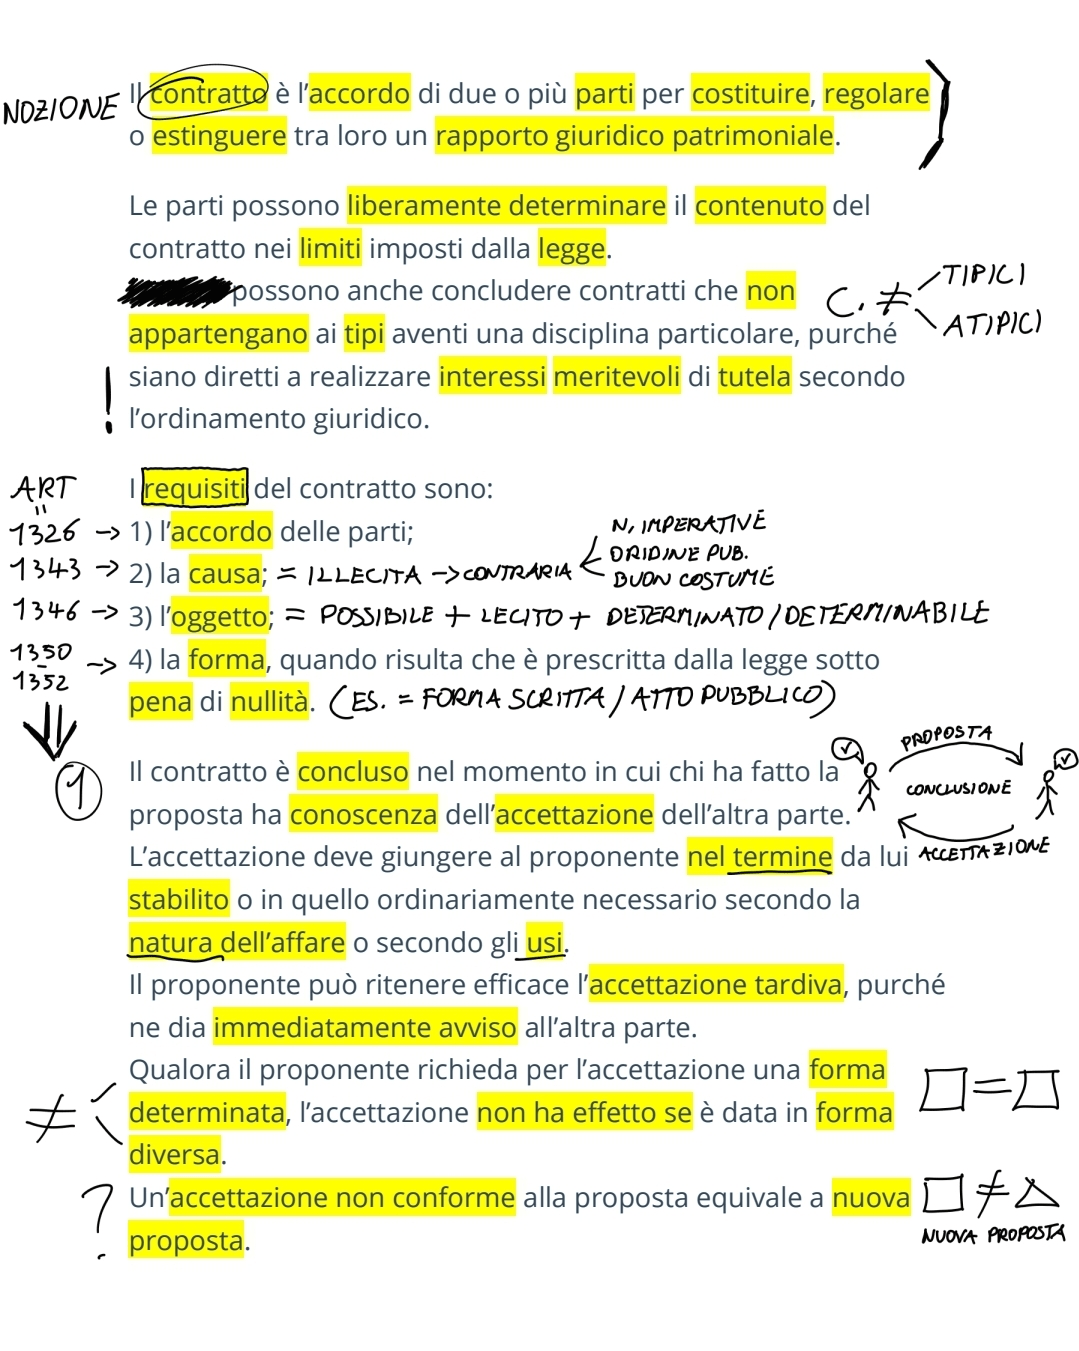 NOZIONE
Il contratto è l'accordo di due o più parti per costituire, regolare
o estinguere tra loro un rapporto giuridico patrimoniale.
Le parti possono liberamente determinare il contenuto del
contratto nei limiti imposti dalla legge.
possono anche concludere contratti che non
C. ≠ TIPICI
ATIPICI
appartengano ai tipi aventi una disciplina particolare, purché
! siano diretti a realizzare interessi meritevoli di tutela secondo
l'ordinamento giuridico.
ART
=
I requisiti del contratto sono:
1326 → 1) l'accordo delle parti;
1343 → 2) la causa; = ILLECITA → CONTRARIA
N, IMPERATIVE
ORIDINE PUB.
BUON COSTUME
1346 → 3) l'oggetto; = POSSIBILE + LECITO + DETERMINATO / DETERMINABILE
1350 - 1352 → 4) la forma, quando risulta che è prescritta dalla legge sotto
pena di nullità. (ES. = FORMA SCRITTA / ATTO PUBBLICO)
1
Il contratto è concluso nel momento in cui chi ha fatto la
proposta ha conoscenza dell'accettazione dell'altra parte.
PROPOSTA
CONCLUSIONE
ACCETTAZIONE
L'accettazione deve giungere al proponente nel termine da lui
stabilito o in quello ordinariamente necessario secondo la
natura dell'affare o secondo gli usi.
Il proponente può ritenere efficace l'accettazione tardiva, purché
ne dia immediatamente avviso all'altra parte.
Qualora il proponente richieda per l'accettazione una forma
≠ determinata, l'accettazione non ha effetto se è data in forma
□ = □
diversa.
? Un'accettazione non conforme alla proposta equivale a nuova
proposta.
□ ≠ △
NUOVA PROPOSTA